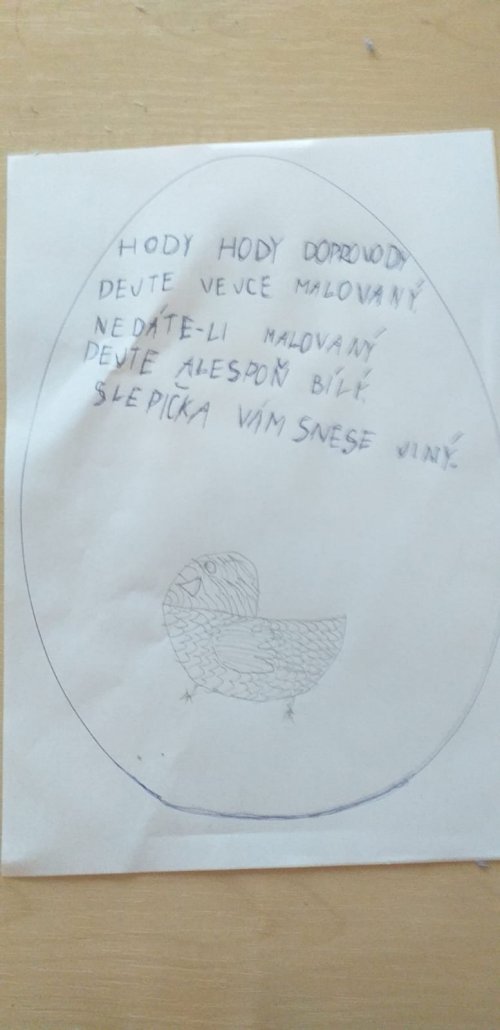 HODY HODY DOPROVODY
DEJTE VEJCE MALOVANÝ.
NEDÁTE-LI MALOVANÝ
DEJTE ALESPOŇ BÍLÝ.
SLEPIČKA VÁM SNESE JINÝ.